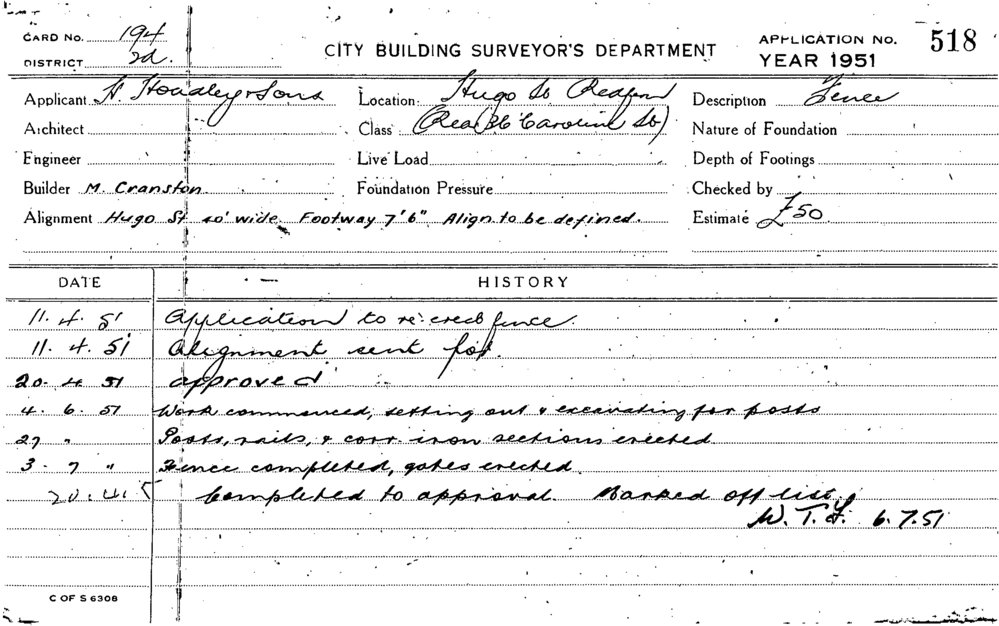 CARD NO. 194
DISTRICT 2d.
CITY BUILDING SURVEYOR'S DEPARTMENT
APPLICATION NO. 518
YEAR 1951
Applicant H. Hoadley & Sons
Location: Hugo St Redfern
Description Fence
Architect
Class (Rea 36 Caroline St)
Nature of Foundation
Engineer
Live Load
Depth of Footings
Builder M. Cranston
Foundation Pressure
Checked by
Alignment Hugo St 40' wide. Footway 7'6" Align. to be defined.
Estimate £50
DATE HISTORY
11. 4. 51 Application to re-erect fence.
11. 4. 51 Alignment sent for.
20. 4 51 approved
4. 6. 51 Work commenced, setting out & excavating for posts
27 " Posts, rails, & corr. iron sections erected
3. 7 " Fence completed, gates erected.
20.4.5 Completed to approval. Marked off list
W. T. 6.7.51
C OF S 6308